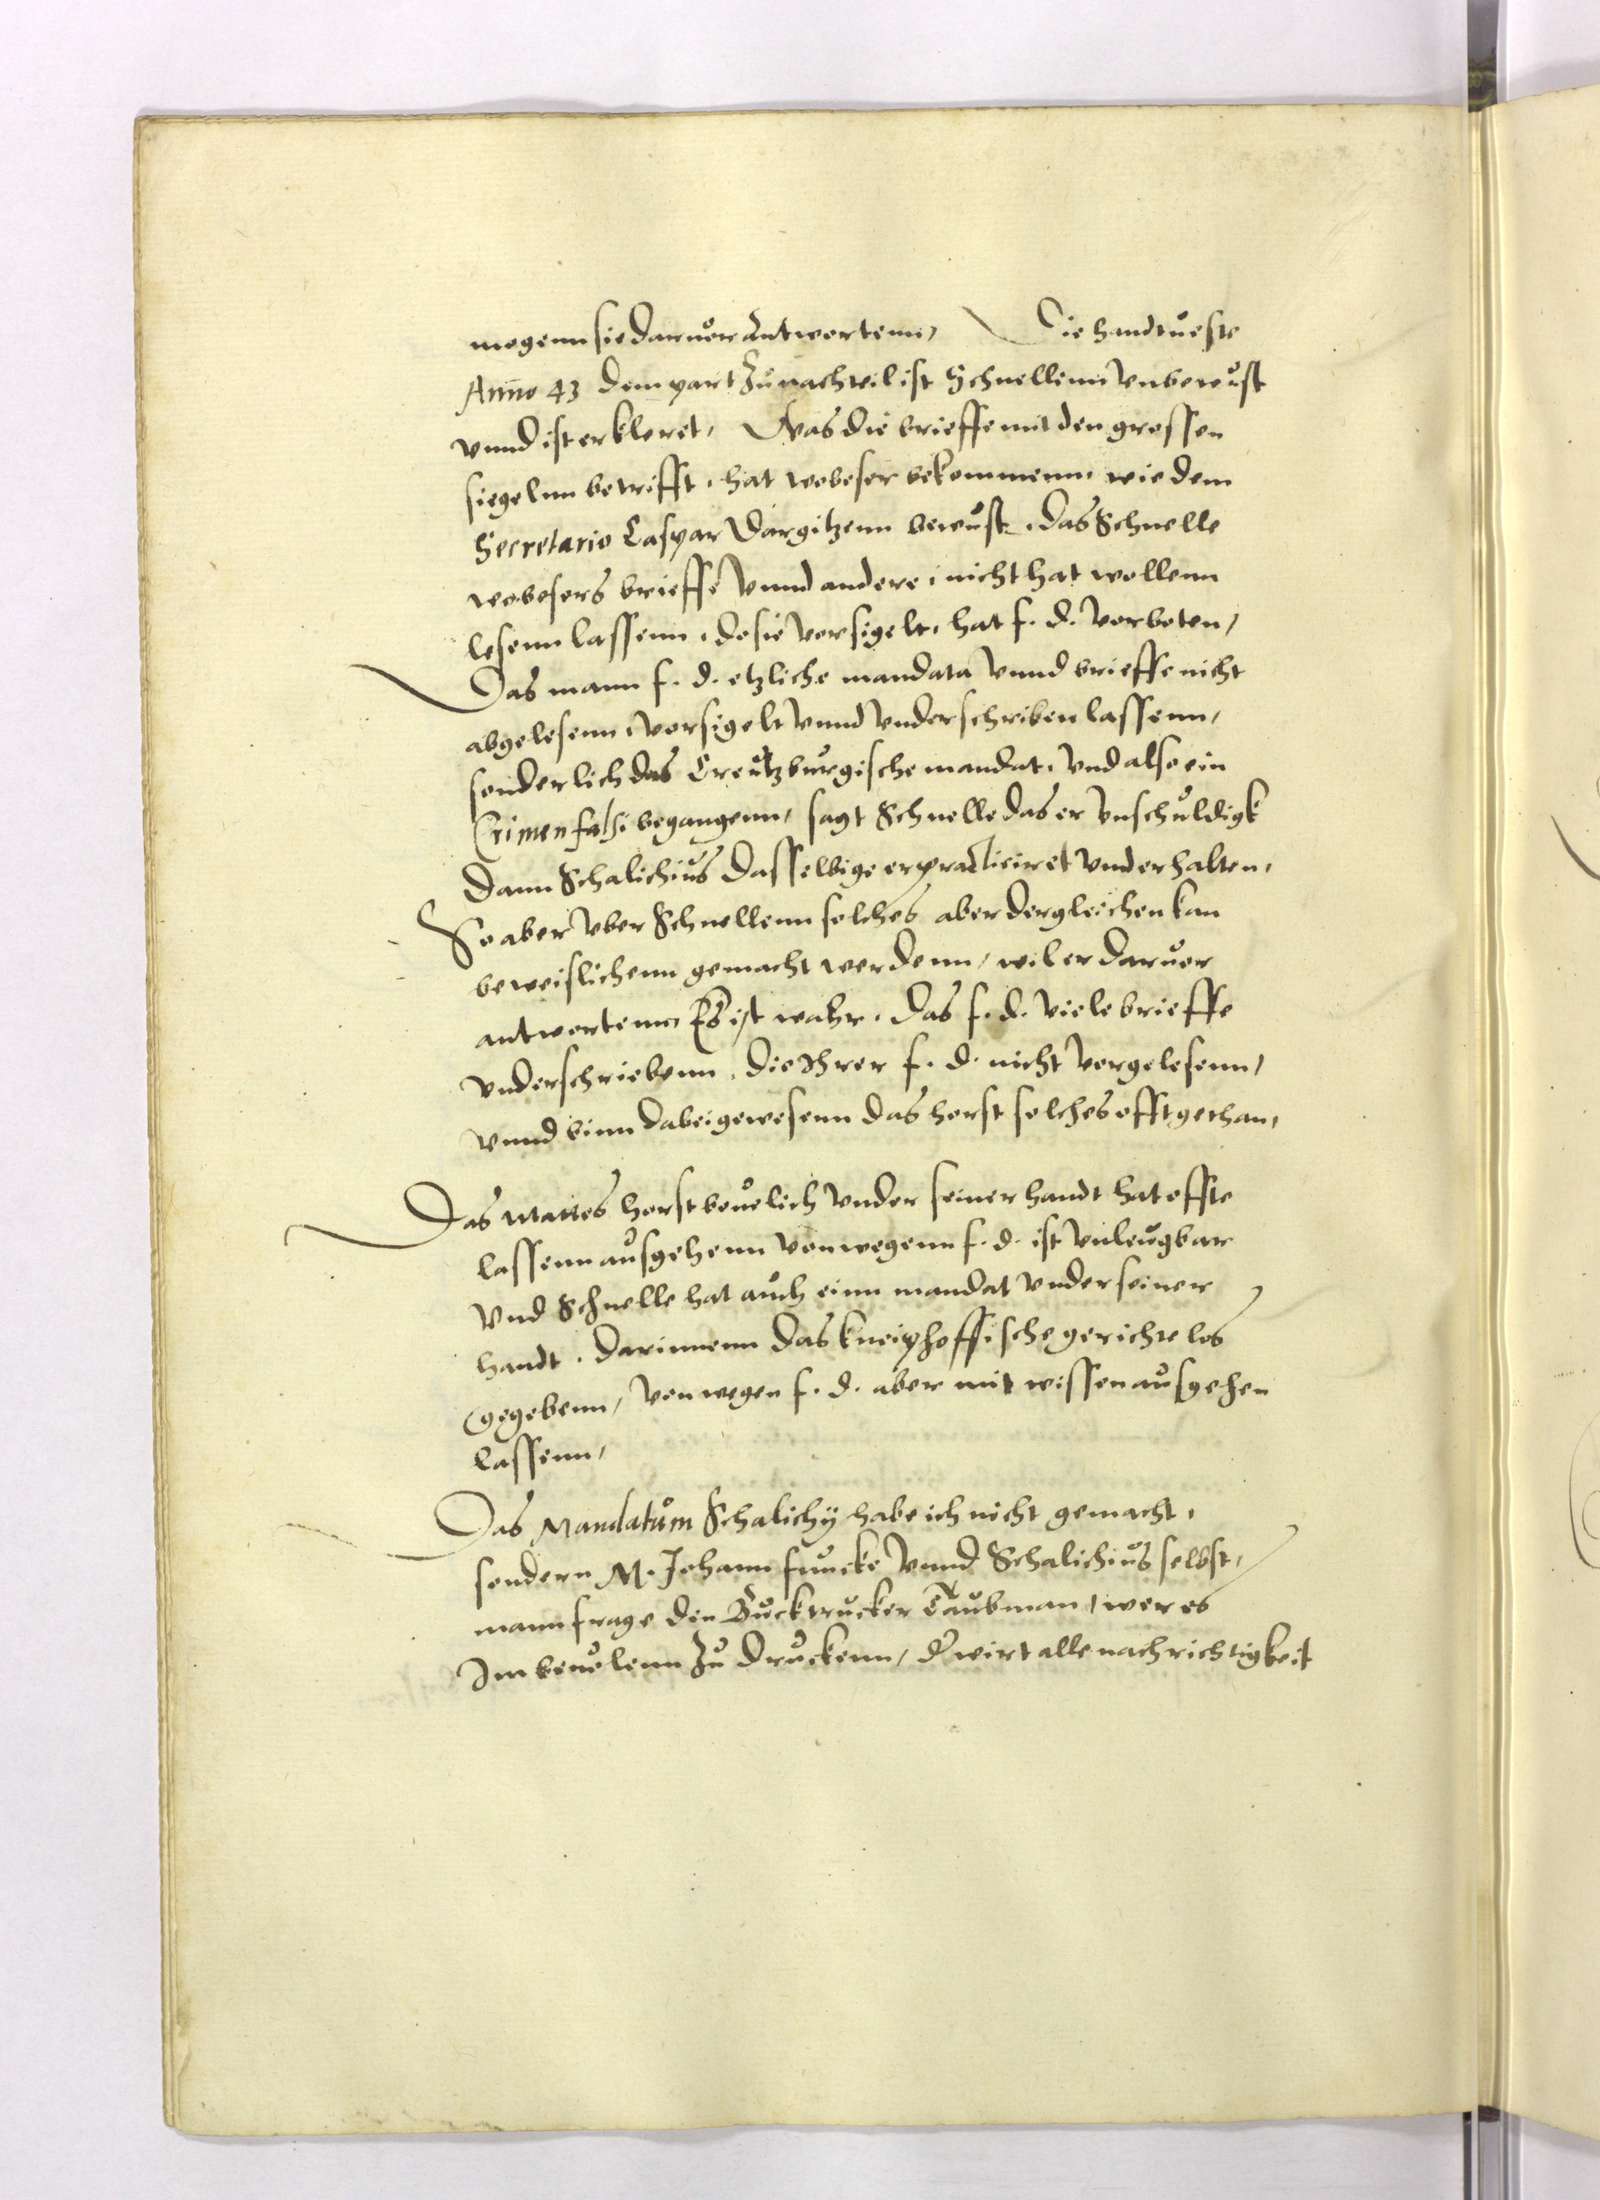 mogenn sie daruor Antworttenn, Die handtueste
Anno 43 dem part zu nachteil ist Schnellenn vnbewust
vnnd ist erkleret, Was die brieffe mit den grossen
siegelnn betrifft, hat wobeser bekommenn, wie dem
Secretario Caspar Dargitzenn bewust, das Schnelle
wobesers brieffe vnnd andere, nicht hat wollenn
lesenn lassenn, do sie vorsigelt, hat f. d. vorboten,
Das mann f. d. etzliche mandata vnnd brieffe nicht
abgelesenn, vorsigelt vnnd vnderschriben lassenn,
sonderlich das Creutzburgische mandat, vnd also ein
Crimen falsi begangenn, sagt Schnelle das er vnschuldigk
Dann Schalichius dasselbige erpracticiret vnd erhalten,
So aber vber Schnellenn solches aber dergleichen kan
beweislichenn gemacht werdenn, wil er daruor
antwortenn, Es ist wahr, das f. d. viele brieffe
vnderschriebenn, die Ihrer f. d. nicht vorgelesenn,
vnnd binn dabei gewesenn das horst solches offt gethan,
Das Mattes horst beuelich vnder seiner handt hat offte
lassenn ausgehenn von wegenn f. d. ist vnleugbar
Vnd Schnelle hat auch einn mandat vnder seiner
handt, darinnenn das kneiphoffische gerichte los
gegebenn, von wegen f. d. aber mit wissen ausgehen
lassenn,
Das Mandatum Schalichij habe ich nicht gemacht,
sondern M. Johann funcke vnnd Schalichius selbst,
mann frage den Bucktrucker Taubman, wer es
Im beuolenn zu druckenn, d wirt alle nachrichtigkeit